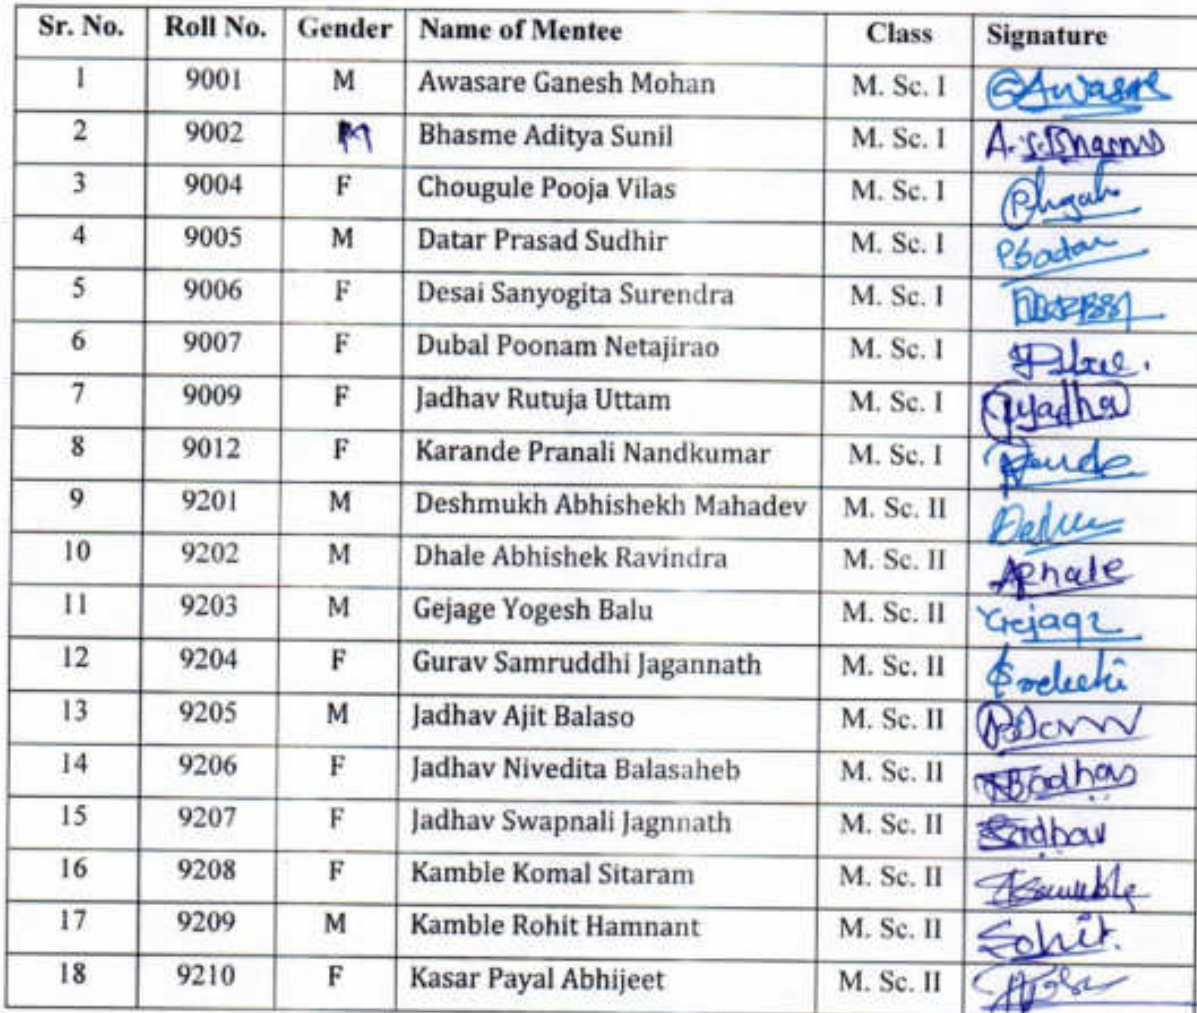 Sr. No. Roll No. Gender Name of Mentee Class Signature
1 9001 M Awasare Ganesh Mohan M. Sc. I GAwasare
2 9002 M Bhasme Aditya Sunil M. Sc. I
3 9004 F Chougule Pooja Vilas M. Sc. I
4 9005 M Datar Prasad Sudhir M. Sc. I
5 9006 F Desai Sanyogita Surendra M. Sc. I
6 9007 F Dubal Poonam Netajirao M. Sc. I
7 9009 F Jadhav Rutuja Uttam M. Sc. I
8 9012 F Karande Pranali Nandkumar M. Sc. I
9 9201 M Deshmukh Abhishekh Mahadev M. Sc. II
10 9202 M Dhale Abhishek Ravindra M. Sc. II
11 9203 M Gejage Yogesh Balu M. Sc. II
12 9204 F Gurav Samruddhi Jagannath M. Sc. II
13 9205 M Jadhav Ajit Balaso M. Sc. II
14 9206 F Jadhav Nivedita Balasaheb M. Sc. II
15 9207 F Jadhav Swapnali Jagnnath M. Sc. II
16 9208 F Kamble Komal Sitaram M. Sc. II
17 9209 M Kamble Rohit Hamnant M. Sc. II
18 9210 F Kasar Payal Abhijeet M. Sc. II